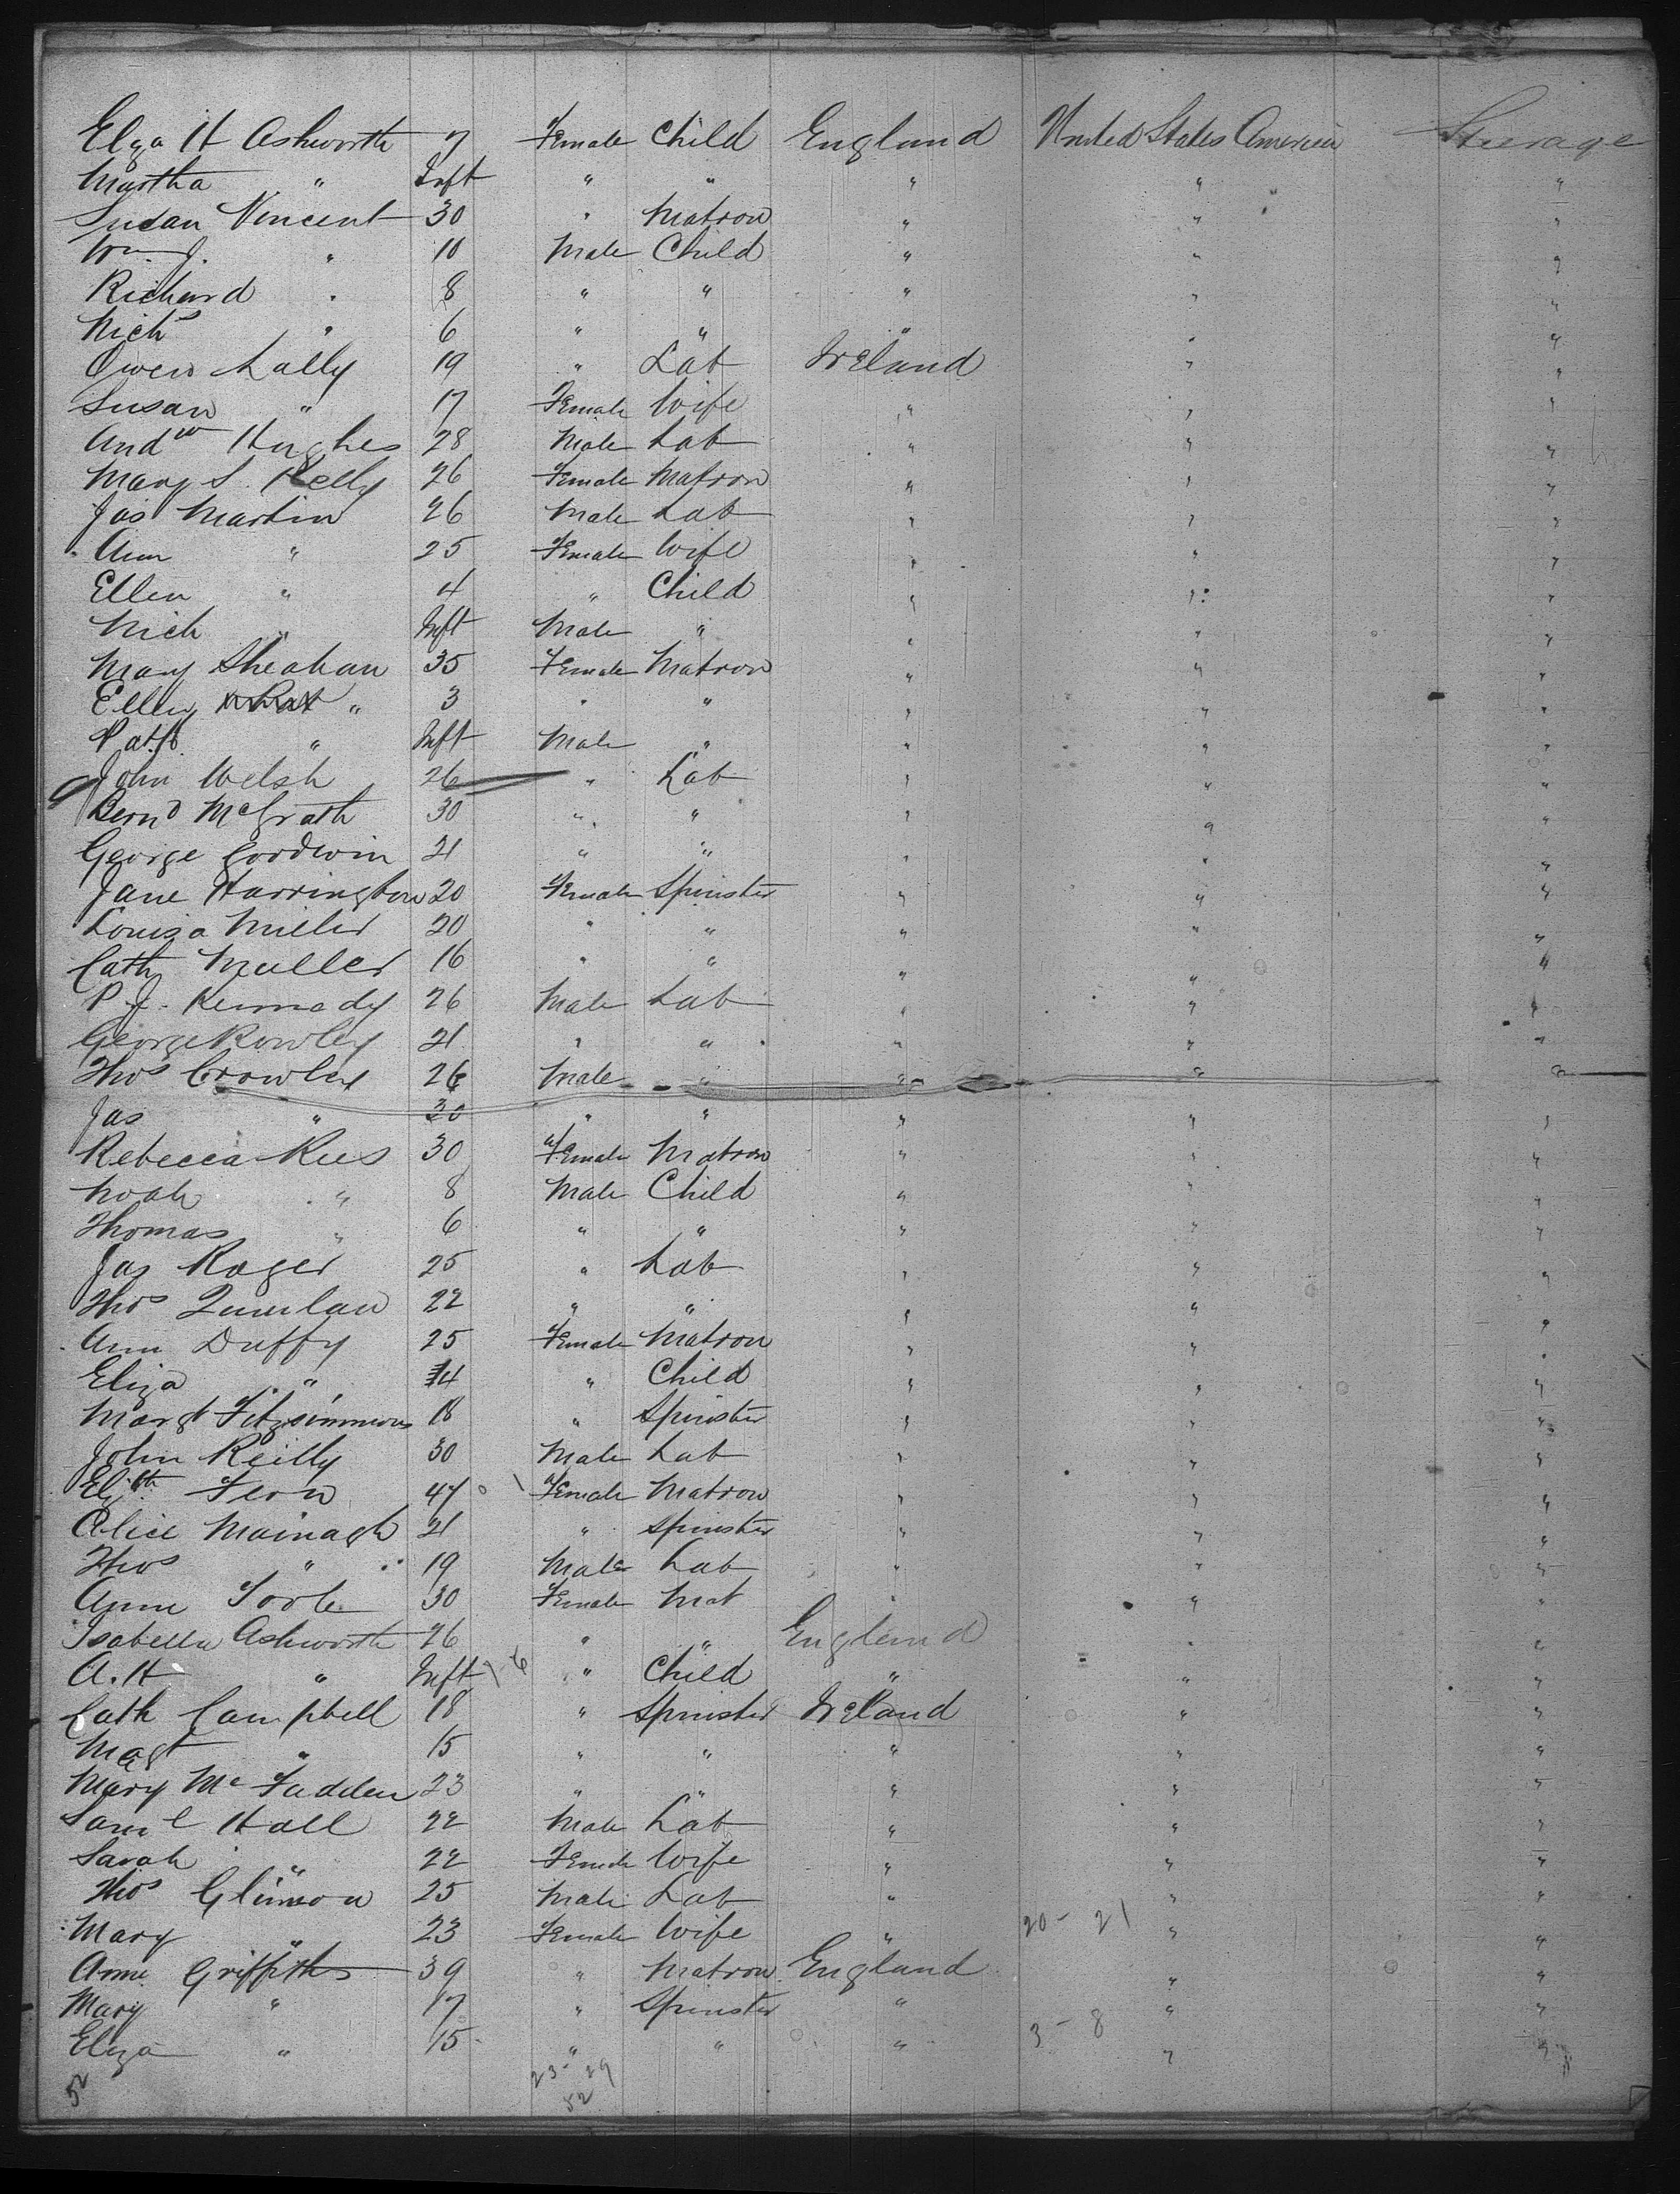 Eliza H Ashworth 7 Female Child England United States America Steerage
Martha " Inft " " " " "
Susan Vincent 30 " Matron " " "
Wm. J. " 10 Male Child " " "
Richard " 8 " " " " "
Nichs " 6 " " " " "
Owen Lally 19 " Lab Ireland " "
Susan " 17 Female Wife " " "
Andw Hughes 28 Male Lab " " "
Mary S. Kelly 26 Female Matron " " "
Jas Martin 26 Male Lab " " "
Ann " 25 Female Wife " " "
Ellen " 4 " Child " " "
Nich " Inft Male " " " "
Mary Sheahan 35 Female Matron " " "
Ellen " 3 " " " " "
Patk " Inft Male " " " "
John Welsh 26 " Lab " " "
Bernd McGrath 30 " " " " "
George Goodwin 21 " " " " "
Jane Harrington 20 Female Spinster " " "
Louisa Miller 20 " " " " "
Cath Muller 16 " " " " "
P. J. Kennady 26 Male Lab " " "
George Rowley 21 " " " " "
Thos Crowley 26 Male " " " "
Jas " 30 " " " " "
Rebecca Rees 30 Female Matron " " "
Noah " 8 Male Child " " "
Thomas " 6 " " " " "
Jas Roger 25 " Lab " " "
Thos Quinlan 22 " " " " "
Ann Duffy 25 Female Matron " " "
Eliza " 4 " Child " " "
Margt Fitzsimmons 18 " Spinster " " "
John Reilly 30 Male Lab " " "
Elizth 47 Female Matron " " "
Alice Mainagh 21 " Spinster " " "
Thos " 19 Male Lab " " "
Anne Toole 30 Female Mat " " "
Isabella Ashworth 26 " " England " "
A. H " Inft " Child " " "
Cath Campbell 18 " Spinster Ireland " "
Magt " 15 " " " " "
Mary McFadden 23 " " " " "
Saml Hall 22 Male Lab " " "
Sarah " 22 Female Wife " " "
Thos 25 Male Lab " " "
Mary " 23 Female Wife " 20 - 21 " "
Anne Griffiths 39 " Matron England " "
Mary " 17 " Spinster " " "
Eliza " 15 " " " 3 - 8 " "
52 23 - 29
52